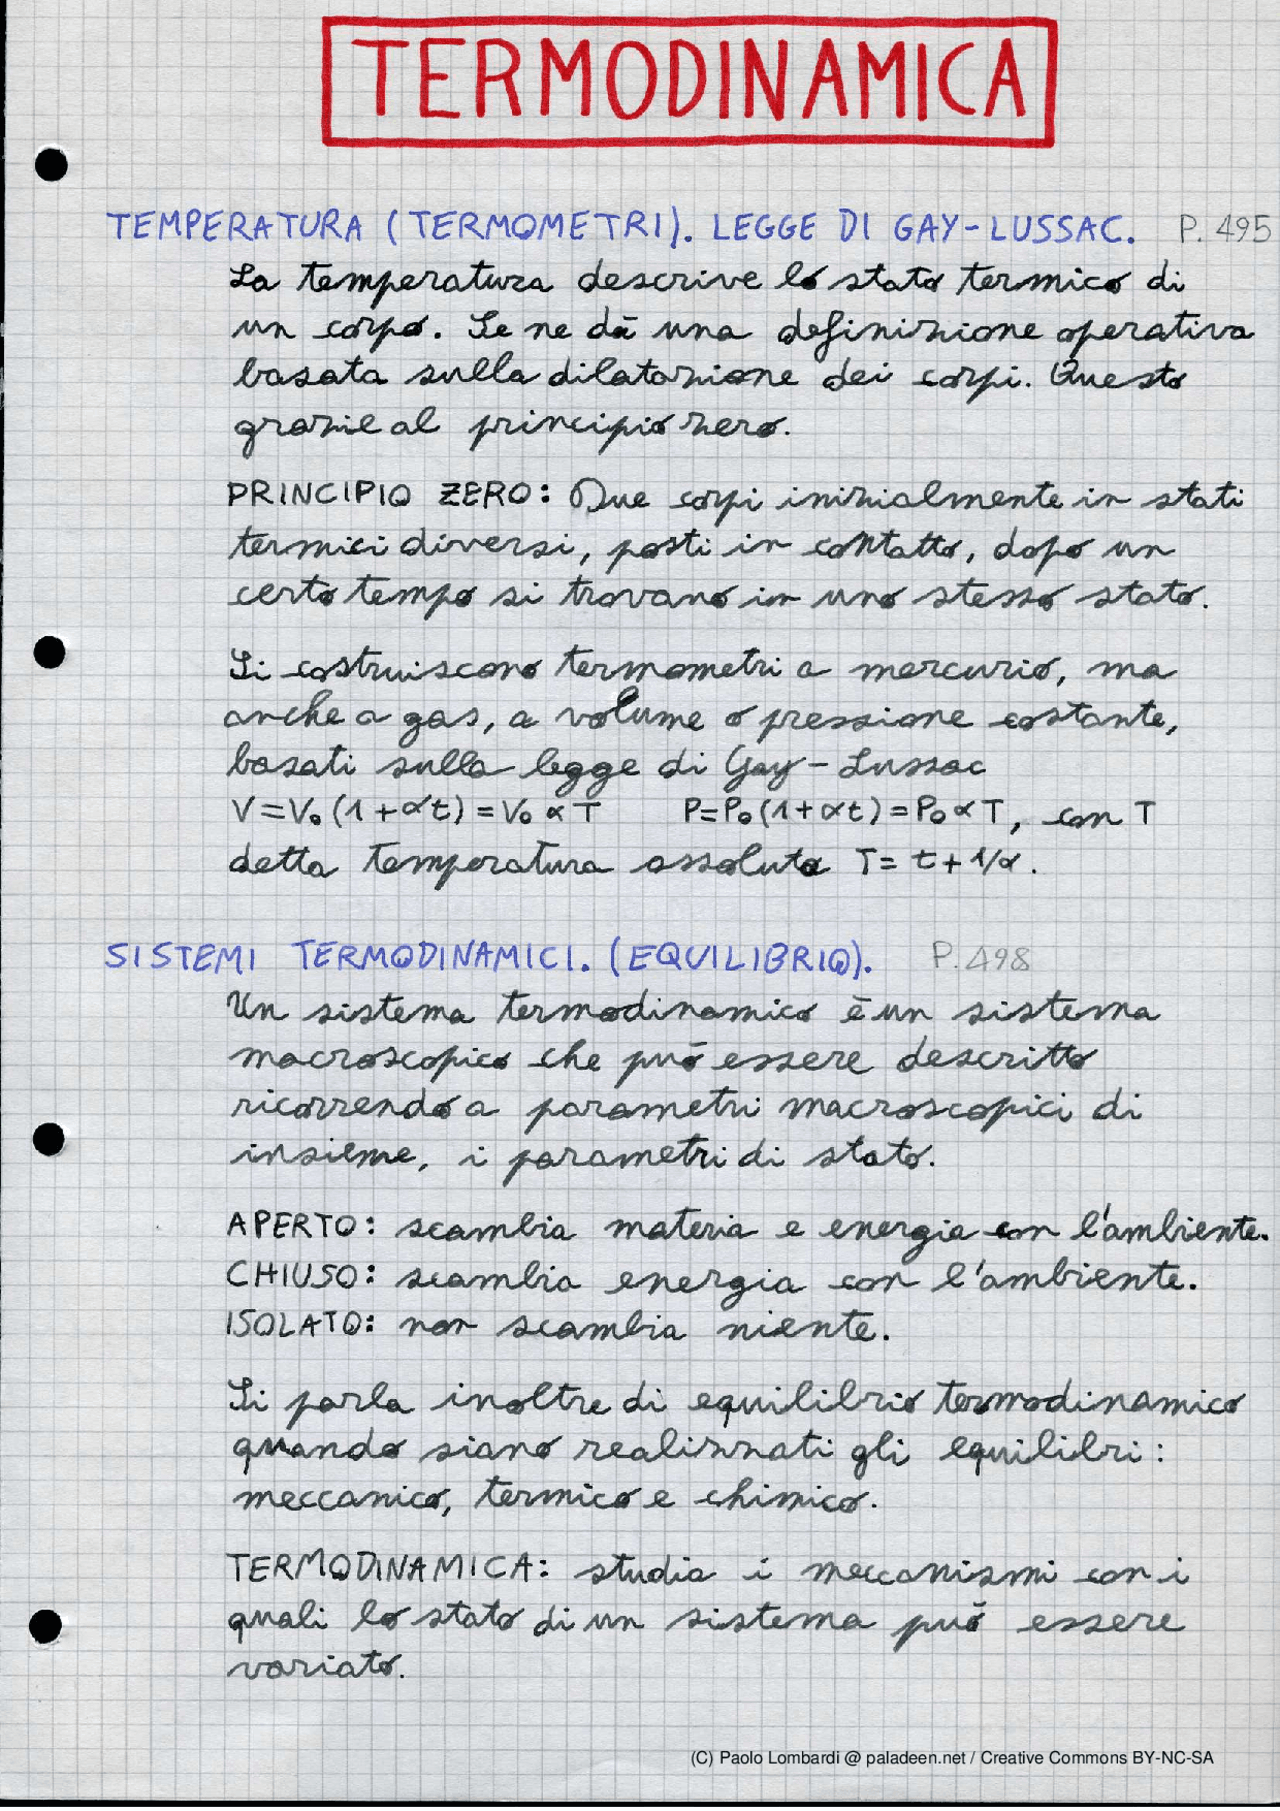 TERMODINAMICA
TEMPERATURA (TERMOMETRI). LEGGE DI GAY-LUSSAC. P. 495
La temperatura descrive lo stato termico di
un corpo. Se ne dà una definizione operativa
basata sulla dilatazione dei corpi. Questo
grazie al principio zero.
PRINCIPIO ZERO: Due corpi inizialmente in stati
termici diversi, posti in contatto, dopo un
certo tempo si trovano in uno stesso stato.
Si costruiscono termometri a mercurio, ma
anche a gas, a volume o pressione costante,
basati sulla legge di Gay-Lussac
V=V₀(1+αt)=V₀αT P=P₀(1+αt)=P₀αT, con T
detta temperatura assoluta T= t+1/α.
SISTEMI TERMODINAMICI. (EQUILIBRIO). P.498
Un sistema termodinamico è un sistema
macroscopico che può essere descritto
ricorrendo a parametri macroscopici di
insieme, i parametri di stato.
APERTO: scambia materia e energia con l'ambiente.
CHIUSO: scambia energia con l'ambiente.
ISOLATO: non scambia niente.
Si parla inoltre di equilibrio termodinamico
quando siano realizzati gli equilibri:
meccanico, termico e chimico.
TERMODINAMICA: studia i meccanismi con i
quali lo stato di un sistema può essere
variato.
(C) Paolo Lombardi @ paladeen.net / Creative Commons BY-NC-SA